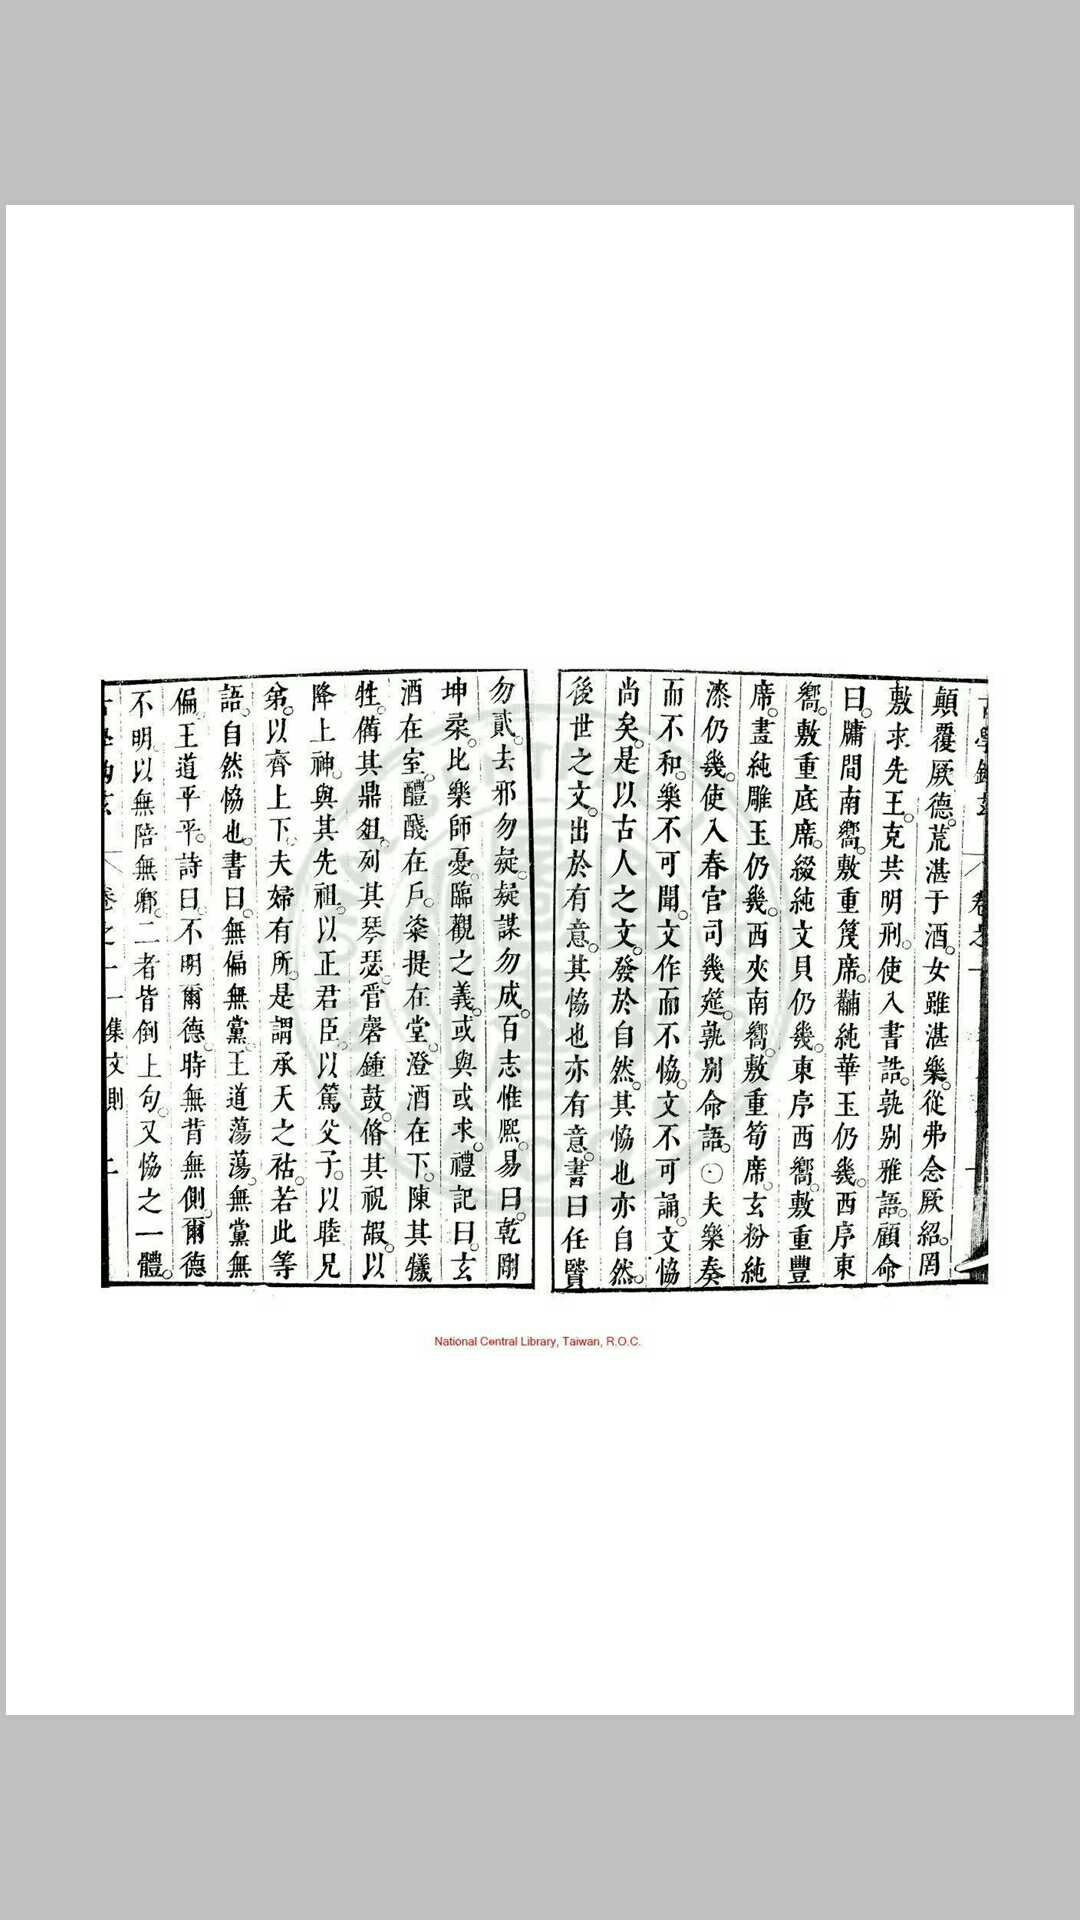 顛覆厥德。荒湛于酒。女雖湛樂。從弗念厥紹。罔
敷求先王。克共明刑。使入書誥。孰别雅語。顧命
曰。牖間南嚮。敷重篾席。黼純華玉仍几。西序東
嚮。敷重底席。綴純文貝仍几。東序西嚮。敷重豐
席。畫純雕玉仍几。西夾南嚮。敷重筍席。玄粉純
漆仍几。使入春官司几筵。孰别命語。○夫樂奏
而不和。樂不可聞。文作而不恊。文不可誦。文恊
尚矣。是以古人之文。發於自然。其恊也亦自然。
後世之文。出於有意。其恊也亦有意。書曰任賢
勿貳。去邪勿疑。疑謀勿成。百志惟熈。易曰。乾剛
坤柔。比樂師憂。臨觀之義。或與或求。禮記曰。玄
酒在室。醴醆在戶。粢提在堂。澄酒在下。陳其犧
牲。備其鼎俎。列其琴瑟。管磬鍾鼓。脩其祝嘏。以
降上神。與其先祖。以正君臣。以篤父子。以睦兄
弟。以齊上下。夫婦有所。是謂承天之祜。若此等
語。自然恊也。書曰。無偏無黨。王道蕩蕩。無黨無
偏。王道平平。詩曰。不明爾德。時無背無側。爾德
不明。以無陪無卿。二者皆倒上句。又恊之一體。
卷之一 集文則
National Central Library, Taiwan, R.O.C.